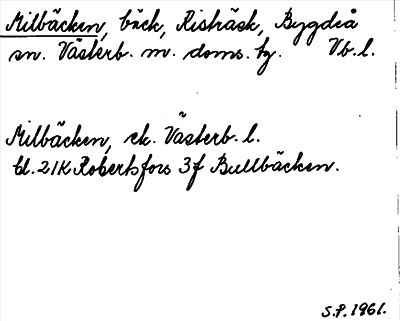 Milbäcken, bäck, Risträsk, Bygdeå
sn. Västerb. m. doms. hg. Vb. l.
Milbäcken, ek. Västerb. l.
bl. 21K Robertsfors 3f Bullbäcken.
S.P. 1961.